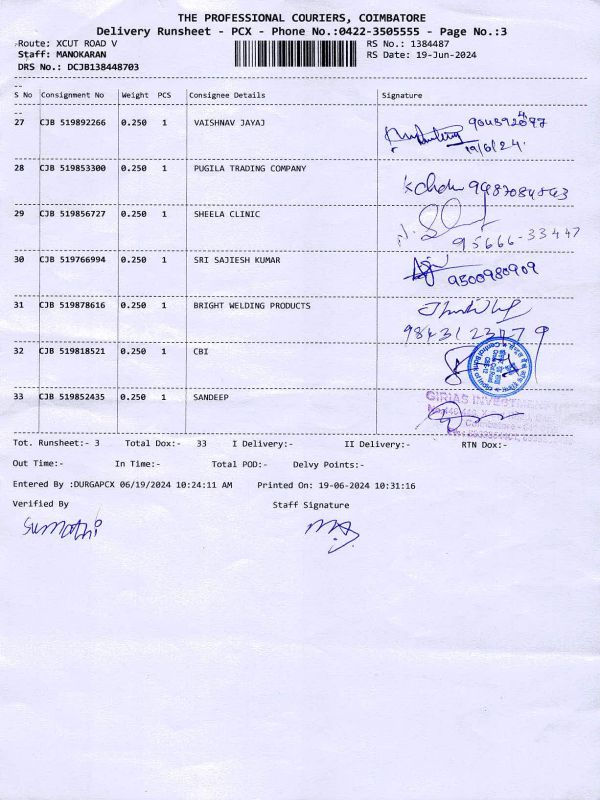 THE PROFESSIONAL COURIERS, COIMBATORE
Delivery Runsheet - PCX - Phone No.:0422-3505555 - Page No.:3
Route: XCUT ROAD V
RS No.: 1384487
Staff: MANOKARAN
RS Date: 19-Jun-2024
DRS No.: DCJB138448703
--
S No Consignment No Weight PCS Consignee Details Signature
--
27 CJB 519892266 0.250 1 VAISHNAV JAYAJ
19/6/24.
28 CJB 519853300 0.250 1 PUGILA TRADING COMPANY
29 CJB 519856727 0.250 1 SHEELA CLINIC
95666-33447
30 CJB 519766994 0.250 1 SRI SAJIESH KUMAR
9500980909
31 CJB 519878616 0.250 1 BRIGHT WELDING PRODUCTS
9843123779
32 CJB 519818521 0.250 1 CBI
33 CJB 519852435 0.250 1 SANDEEP
GIRIAS INVESTMENT
Tot. Runsheet:- 3 Total Dox:- 33 I Delivery:- II Delivery:- RTN Dox:-
Out Time:- In Time:- Total POD:- Delvy Points:-
Entered By :DURGAPCX 06/19/2024 10:24:11 AM Printed On: 19-06-2024 10:31:16
Verified By Staff Signature
Sumathi